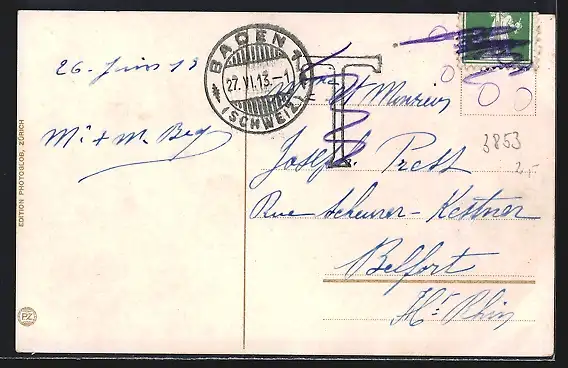 26 Juin 13
Mr + Me Bay
EDITION PHOTOGLOB, ZÜRICH
PZ
BADEN 1
27.VI.13.-1
(SCHWEIZ)
T
Mme et Monsieur
Joseph Prest
Rue Scheurer-Kestner
Belfort
Ht Rhin
3853
2,-